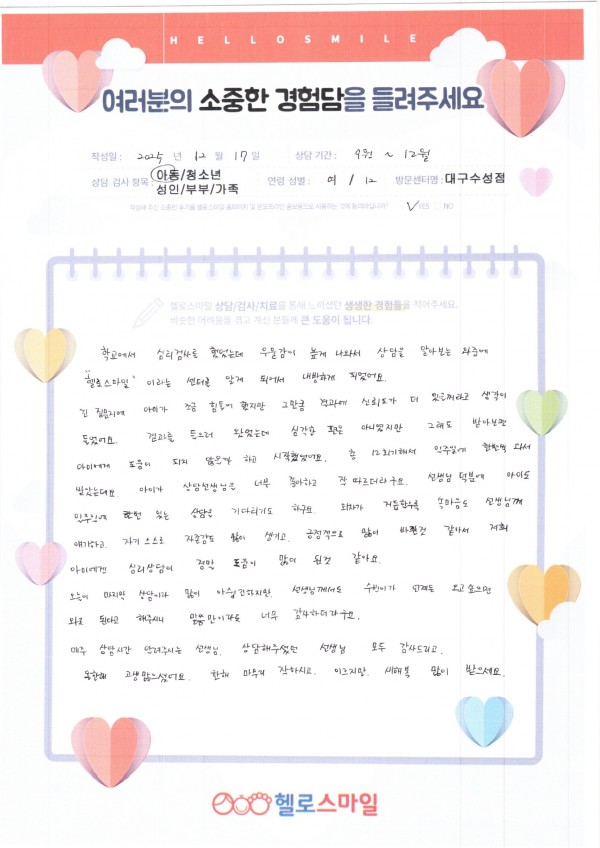 HELLOSMILE
여러분의 소중한 경험담을 들려주세요
작성일 : 2025 년 12 월 17 일 상담 기간 : 9월 ~ 12월
상담·검사 항목 : 아동/청소년 성인/부부/가족 연령 성별 : 여 / 12 방문센터명 : 대구수성점
YES NO
헬로스마일 상담/검사/치료를 통해 느끼셨던 생생한 경험들을 적어주세요.
비슷한 어려움을 겪고 계신 분들께 큰 도움이 됩니다.
학교에서 심리검사를 했었는데 우울감이 높게 나와서 상담을 알아보는 와중에
"헬로스마일" 이라는 센터를 알게 되어서 내방하게 되었어요.
긴 질문지에 아이가 조금 힘들어 했지만 그만큼 결과에 신뢰도가 더 있을꺼라고 생각이
들었어요. 결과를 들으러 왔었는데 심각한 편은 아니었지만 그래도 받아보면
아이에게 도움이 되지 않을까 하고 시작했었어요. 총 12회기해서 일주일에 한번씩 와서
받았는데요. 아이가 상담선생님을 너무 좋아하고 잘 따르더라구요. 선생님 덕분에 아이도
일주일에 한번 있는 상담을 기다리기도 하구요. 회차가 거듭할수록 속마음도 선생님께
얘기하고. 자기 스스로 자존감도 많이 생기고. 긍정적으로 많이 바뀐것 같아서 저희
아이에겐 심리상담이 정말 도움이 많이 된것 같아요.
오늘이 마지막 상담이라 많이 아쉽긴하지만. 선생님께서도 수빈이가 언제든 오고싶으면
와도 된다고 해주시니 말씀만이라도 너무 감사하더라구요.
매주 상담시간 알려주시는 선생님. 상담해주셨던 선생님 모두 감사드리고.
올한해 고생많으셨어요. 한해 마무리 잘하시고. 이르지만. 새해복 많이 받으세요.
헬로스마일